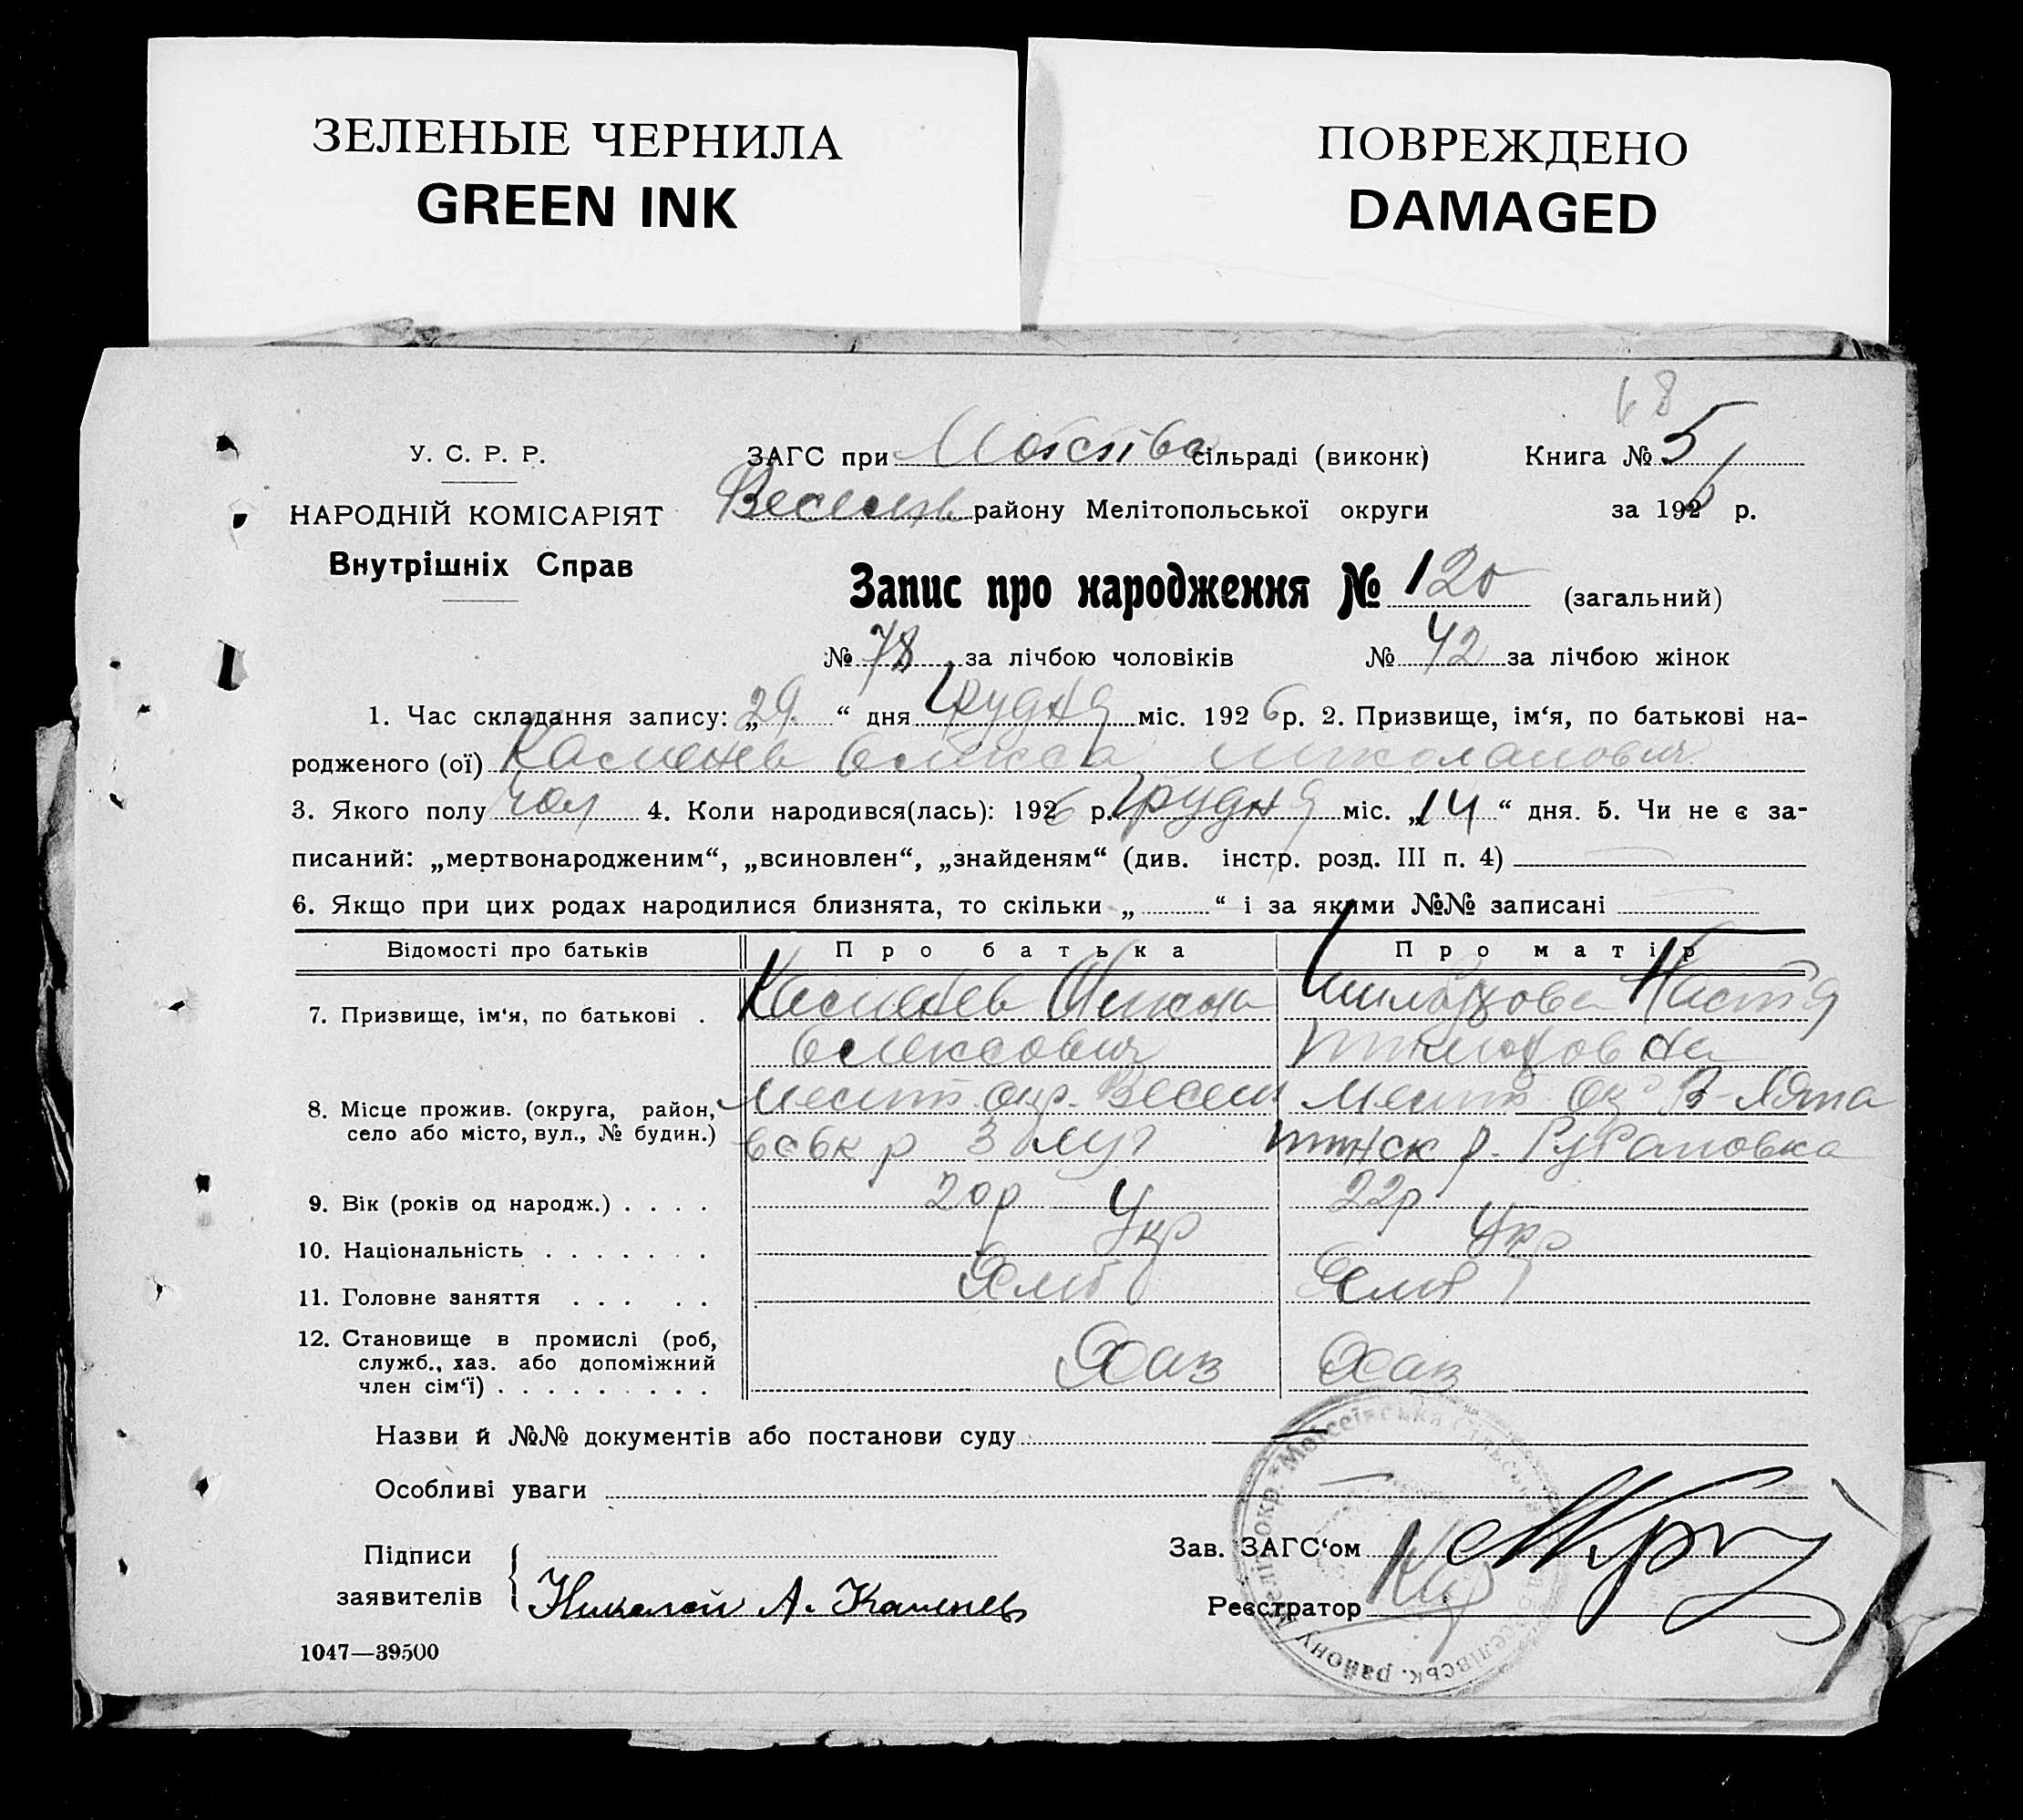 ЗЕЛЕНЫЕ ЧЕРНИЛА
GREEN INK
ПОВРЕЖДЕНО
DAMAGED
68
У. С. Р. Р.
НАРОДНІЙ КОМІСАРІЯТ
Внутрішніх Справ
ЗАГС при сільраді (виконк)
Книга № 5
Весел району Мелітопольської округи
за 1926 р.
Запис про народження № 120 (загальний)
№ 78 за лічбою чоловіків № 42 за лічбою жінок
1. Час складання запису: „29.“ дня Грудня міс. 1926 р. 2. Призвище, ім‘я, по батькові на-
родженого (ої) Каменев Олекса Миколайович
3. Якого полу чол 4. Коли народився(лась): 1926 р. Грудня міс. „14“ дня. 5. Чи не є за-
писаний: „мертвонародженим“, „всиновлен“, „знайденям“ (див. інстр. розд. III п. 4)
6. Якщо при цих родах народилися близнята, то скільки „ “ і за якими №№ записані
Відомості про батьків Про батька Про матір
7. Призвище, ім‘я, по батькові . Каменев Микола Настя
Олексович
8. Місце прожив. (округа, район, Мелит. окр. Весел Мелит
село або місто, вул., № будин.) р р.
9. Вік (років од народж.) . . . . 20р 22р
10. Національність . . . . . . . Укр Укр
11. Головне заняття . . . . . Хліб Хліб
12. Становище в промислі (роб,
служб., хаз. або допоміжний Хаз Хаз
член сім‘ї) . . . . . . . . .
Назви й №№ документів або постанови суду
Особливі уваги
Підписи
заявителів
Николай А. Каменев
Зав. ЗАГС‘ом
Реєстратор
Моісеївська Сільськ
районy Меліт. окр.
1047—39500